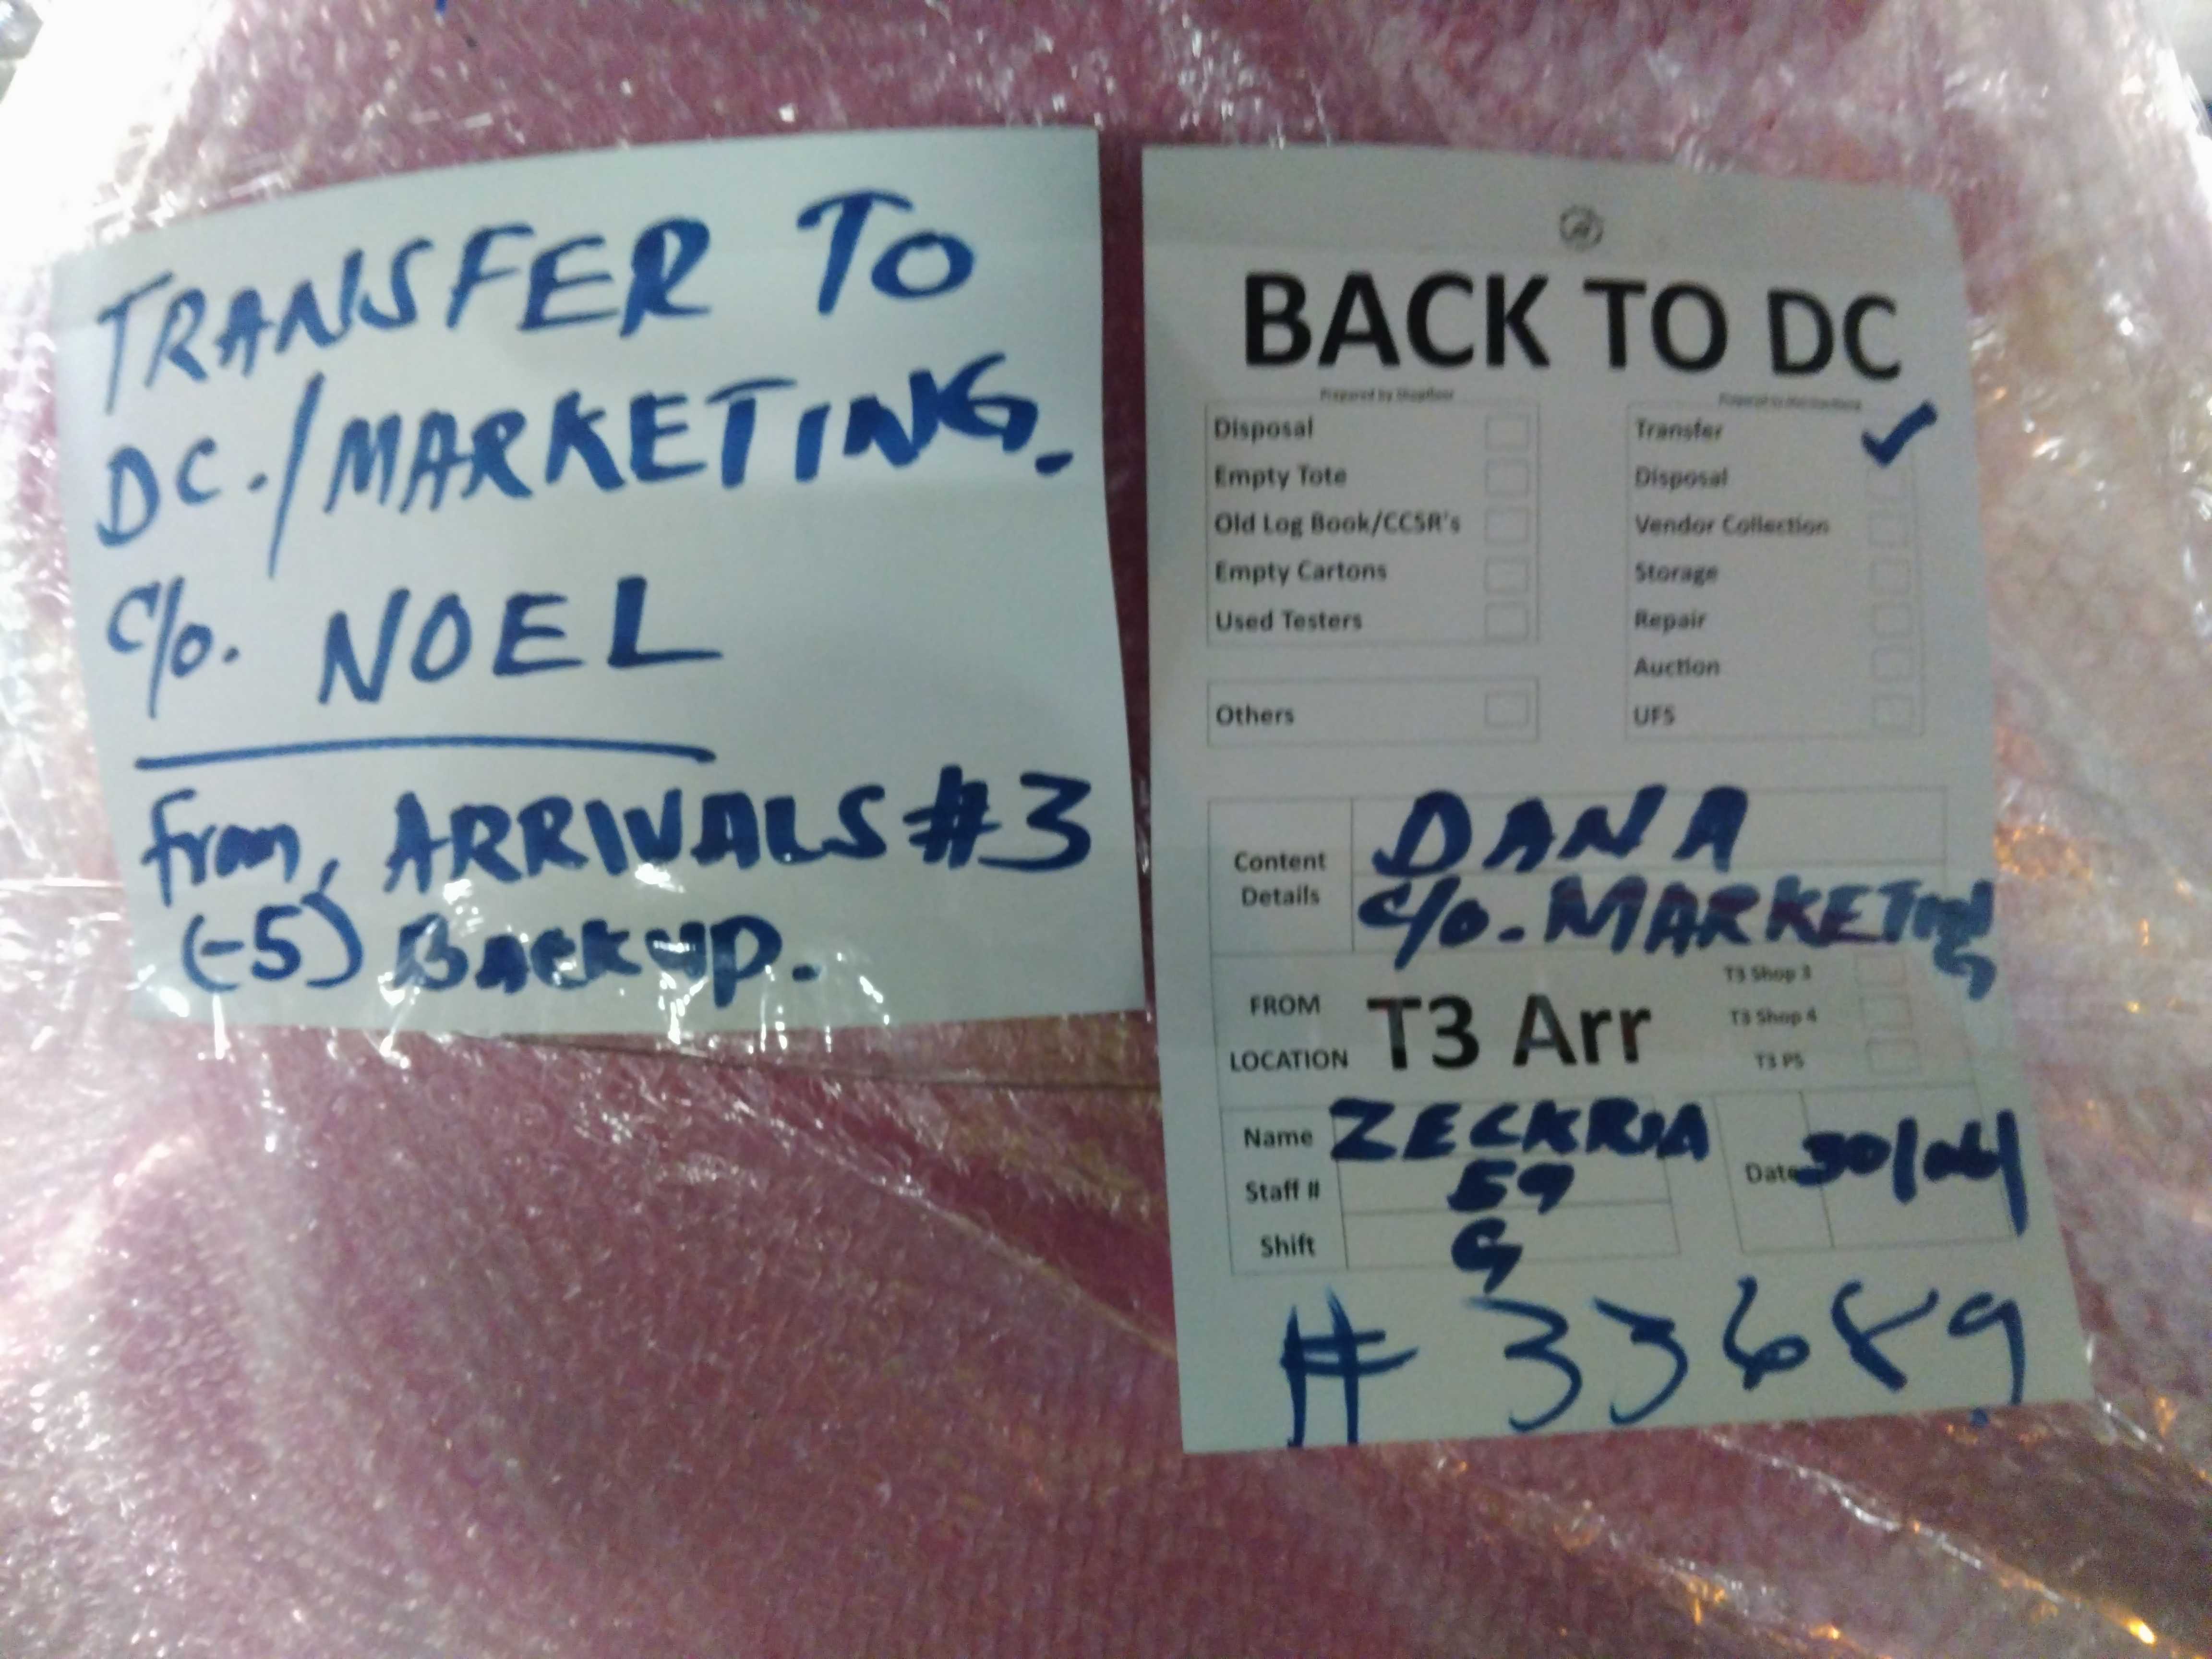 TRANSFER TO
DC./MARKETING.
C/o. NOEL
from, ARRIVALS #3
(-5) Backup.
BACK TO DC
Prepared by Shopfloor
Disposal
Empty Tote
Old Log Book/CCSR's
Empty Cartons
Used Testers
Others
Transfer ✓
Disposal
Vendor Collection
Storage
Repair
Auction
UFS
Content Details
DANA
C/o. MARKETING
FROM LOCATION
T3 Arr
T3 Shop 3
T3 Shop 4
T3 P5
Name ZECKRIA
Staff # 59
Shift G
Date 30/
# 33689